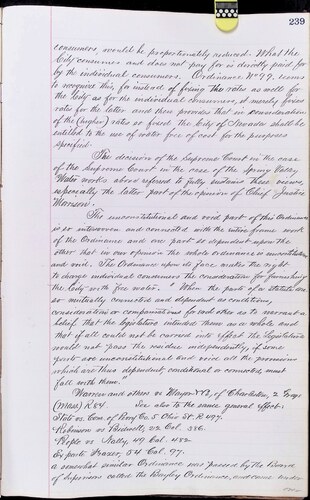 239
consumers, would be proportionately reduced. What the
City consumes and does not pay for is directly paid for
by the individual consumers. Ordinance No 77, seems
to recognize this, for instead of fixing the rates as well for
the City as for the individual consumers, it merely fixes
rates for the latter and then provides that in consideration
of the (higher) rates so fixed the City of shall be
entitled to the use of water free of cost for the purposes
specified.
The decision of the Supreme Court in the case
of the Supreme Court in the case of the Spring Valley
Water Works above referred to fully sustains these views,
especially the latter part of the opinion of Chief Justice
Morrison.
The unconstitutional and void part of this Ordinance
is so interwoven and connected with the entire frame work
of the Ordinance and one part so dependent upon the
other that in our opinion the whole ordinance is unconstitutional
and void. The Ordinance upon its face makes the right
to charge individual consumers the consideration for furnishing
the City with free water. "When the parts of a statute are
so mutually connected and dependent as conditions,
considerations or compensations for each other so to warrant a
belief that the legislature intended them as a whole and
that if all could not be carried into effect the legislature
would not pass the residue independently, if some
parts are unconstitutional and void all the provisions
which are thus dependent, conditional or connected, must
fall with them.
Warren and others vs Mayor &c, of Charleston, 2 Gray
(Mass) R 84. See also to the same general effect:
State vs. Com. of Perry Co. 5 Ohio St. R 497.
Robinson vs Bidwell, 22 Cal. 386.
People vs Nally, 49 Cal. 482
Ex parte Frazer, 54 Cal. 97.
a somewhat similar Ordinance was passed by the Board
of Supervisors called the Bayley Ordinance, and came under